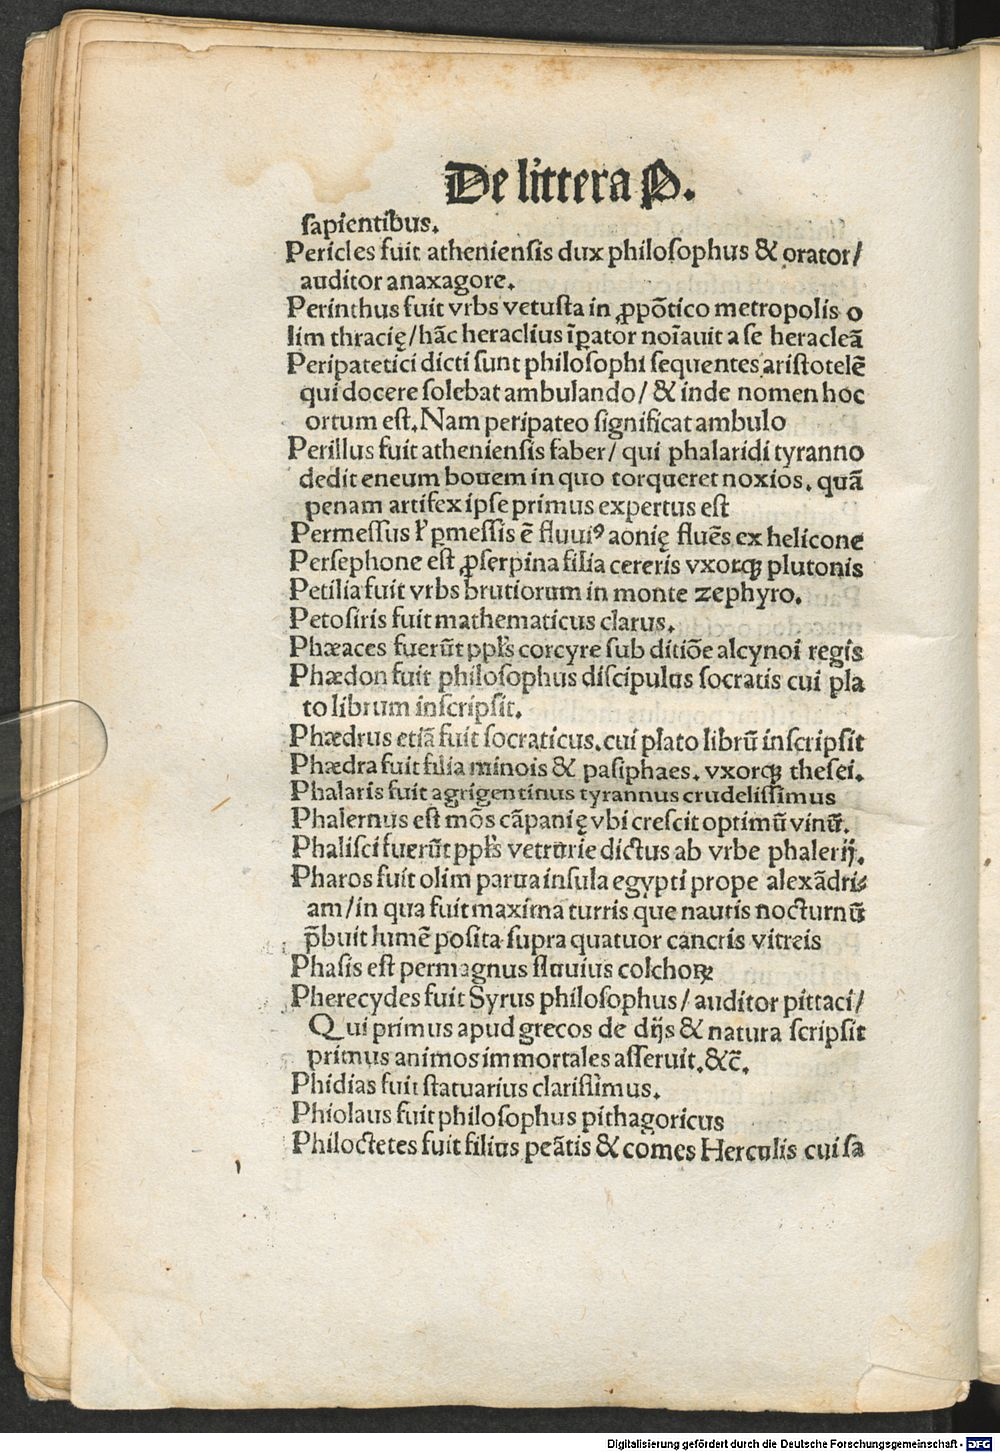 De littera P.
ſapientibus.
Pericles fuit athenienſis dux philoſophus & orator/
auditor anaxagore.
Perinthus fuit vrbs vetuſta in ꝓpõtico metropolis o
lim thracię/hãc heraclius ĩꝑator noĩauit a ſe heracleã
Peripatetici dicti ſunt philoſophi ſequentes ariſtotelẽ
qui docere ſolebat ambulando/ & inde nomen hoc
ortum eſt. Nam peripateo ſignificat ambulo
Perillus fuit athenienſis faber/ qui phalaridi tyranno
dedit eneum bouem in quo torqueret noxios. quã
penam artifex ipſe primus expertus eſt
Permeſſus ł ꝑmeſſis ẽ fluuiꝰ aonię fluẽs ex helicone
Perſephone eſt ꝓſerpina filia cereris vxorqꝫ plutonis
Petilia fuit vrbs brutiorum in monte zephyro.
Petoſiris fuit mathematicus clarus.
Phæaces fuerũt ppłs corcyre ſub ditiõe alcynoi regis
Phædon fuit philoſophus diſcipulus ſocratis cui pla
to librum inſcripſit.
Phædrus etiã fuit ſocraticus. cui plato librũ inſcripſit
Phædra fuit filia minois & paſiphaes. vxorqꝫ theſei.
Phalaris fuit agrigentinus tyrannus crudeliſſimus
Phalernus eſt mõs cãpanię vbi creſcit optimũ vinũ.
Phaliſci fuerũt ppłs vetrurie dictus ab vrbe phalerij.
Pharos fuit olim parua inſula egypti prope alexãdri⸗
am/in qua fuit maxima turris que nautis nocturnũ
p̃buit lumẽ poſita ſupra quatuor cancris vitreis
Phaſis eſt permagnus fluuius colchoꝝ
Pherecydes fuit Syrus philoſophus/ auditor pittaci/
Qui primus apud grecos de dijs & natura ſcripſit
primus animos immortales aſſeruit. &c̃.
Phidias fuit ſtatuarius clariſſimus.
Phiolaus fuit philoſophus pithagoricus
Philoctetes fuit filius peãtis & comes Herculis cui ſa
Digitalisierung gefördert durch die Deutsche Forschungsgemeinschaft - DFG